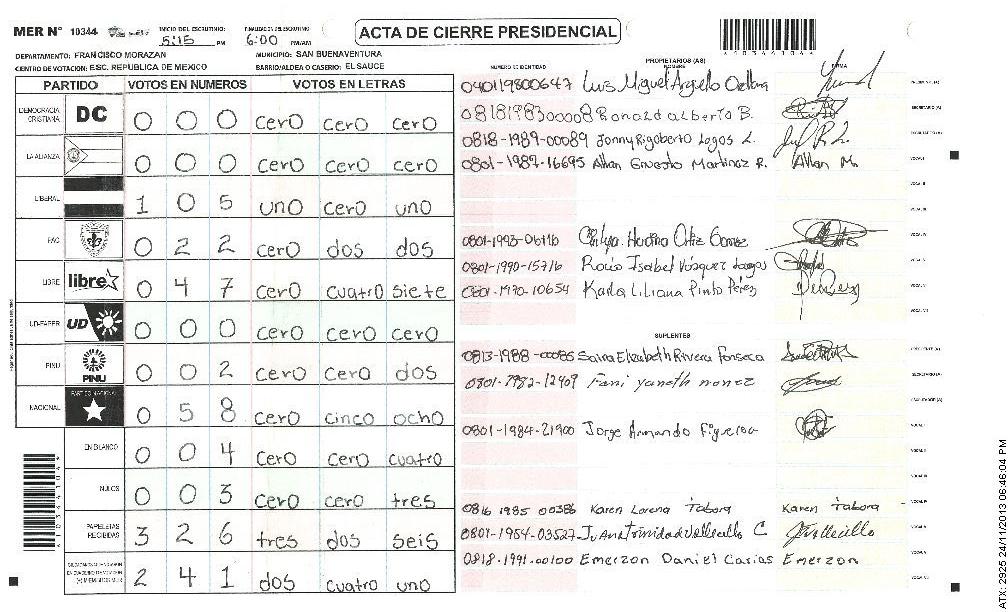 MER Nº 10344
INICIO DEL ESCRUTINIO: 5:15 PM
FINALIZACION DEL ESCRUTINIO 6:00 PM/AM
ACTA DE CIERRE PRESIDENCIAL
DEPARTAMENTO: FRANCISCO MORAZAN
MUNICIPIO: SAN BUENAVENTURA
CENTRO DE VOTACION: ESC. REPUBLICA DE MEXICO
BARRIO/ALDEA O CASERIO: EL SAUCE
PARTIDO VOTOS EN NUMEROS VOTOS EN LETRAS
DEMOCRACIA CRISTIANA DC 0 0 0 cero cero cero
LA ALIANZA 0 0 0 cero cero cero
LIBERAL 1 0 5 uno cero uno
PAC 0 2 2 cero dos dos
LIBRE libre 0 4 7 cero cuatro siete
UD-FAPER UD 0 0 0 cero cero cero
PINU PINU 0 0 2 cero cero dos
NACIONAL PARTIDO NACIONAL 0 5 8 cero cinco ocho
EN BLANCO 0 0 4 cero cero cuatro
NULOS 0 0 3 cero cero tres
PAPELETAS RECIBIDAS 3 2 6 tres dos seis
2 4 1 dos cuatro uno
NUMERO DE IDENTIDAD
PROPIETARIOS (AS)
NOMBRE
FIRMA
040119800647 Luis Miguel Arguello
0818198300008 Ronald alberto B.
0818-1989-00089 Jonny Rigoberto Lagos L.
0801-1987-16695 Allan Ernesto Martinez R. Allan M.
0801-1993-06116 Ortiz Gomez
0801-1990-15716 Rocio Isabel Vásquez
0801-1970-10654 Karla Liliana Pinto Pérez
SUPLENTES
0813-1988-00085 Saira Elizabeth Rivera Fonseca
0801-1982-12409 Fani yaneth nonez
0801-1984-21900 Jorge Armando Figueroa
0816 1985 00386 Karen Lorena Tabora Karen Tabora
0801-1954-03527 Juana Trinidad Vallecillo C
0818-1991-00100 Emerzon Daniel Casias Emerzon
ATX: 2925 24/11/2013 06:46:04 PM